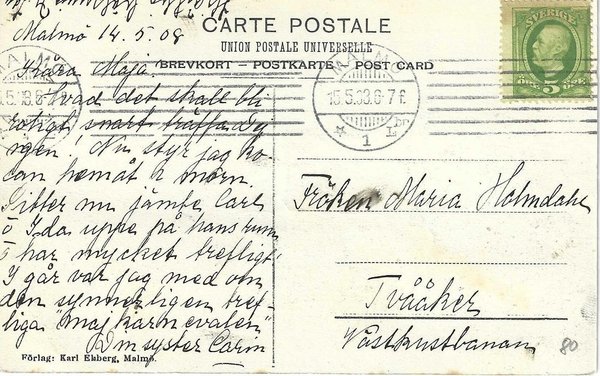 CARTE POSTALE
UNION POSTALE UNIVERSELLE
BREVKORT – POSTKARTE – POST CARD
SVERIGE
5
Malmö 14.5.08
Kära Maja.
Hvad det skall bli
roligt snart träffa dy
ngen! Nu styr jag ko
san hemåt i morn.
Sitter nu jämte Carl
o Ida uppe på hans rum
o har mycket trefligt.
I går var jag med om
den synnerligen tref-
liga "majkarnevalen"
Din syster Carin
Fröken Maria Holmdahl
Tvååker
Västkustbanan
80
15.5.08.6-7 f.
1 L
Förlag: Karl Ekberg, Malmö.